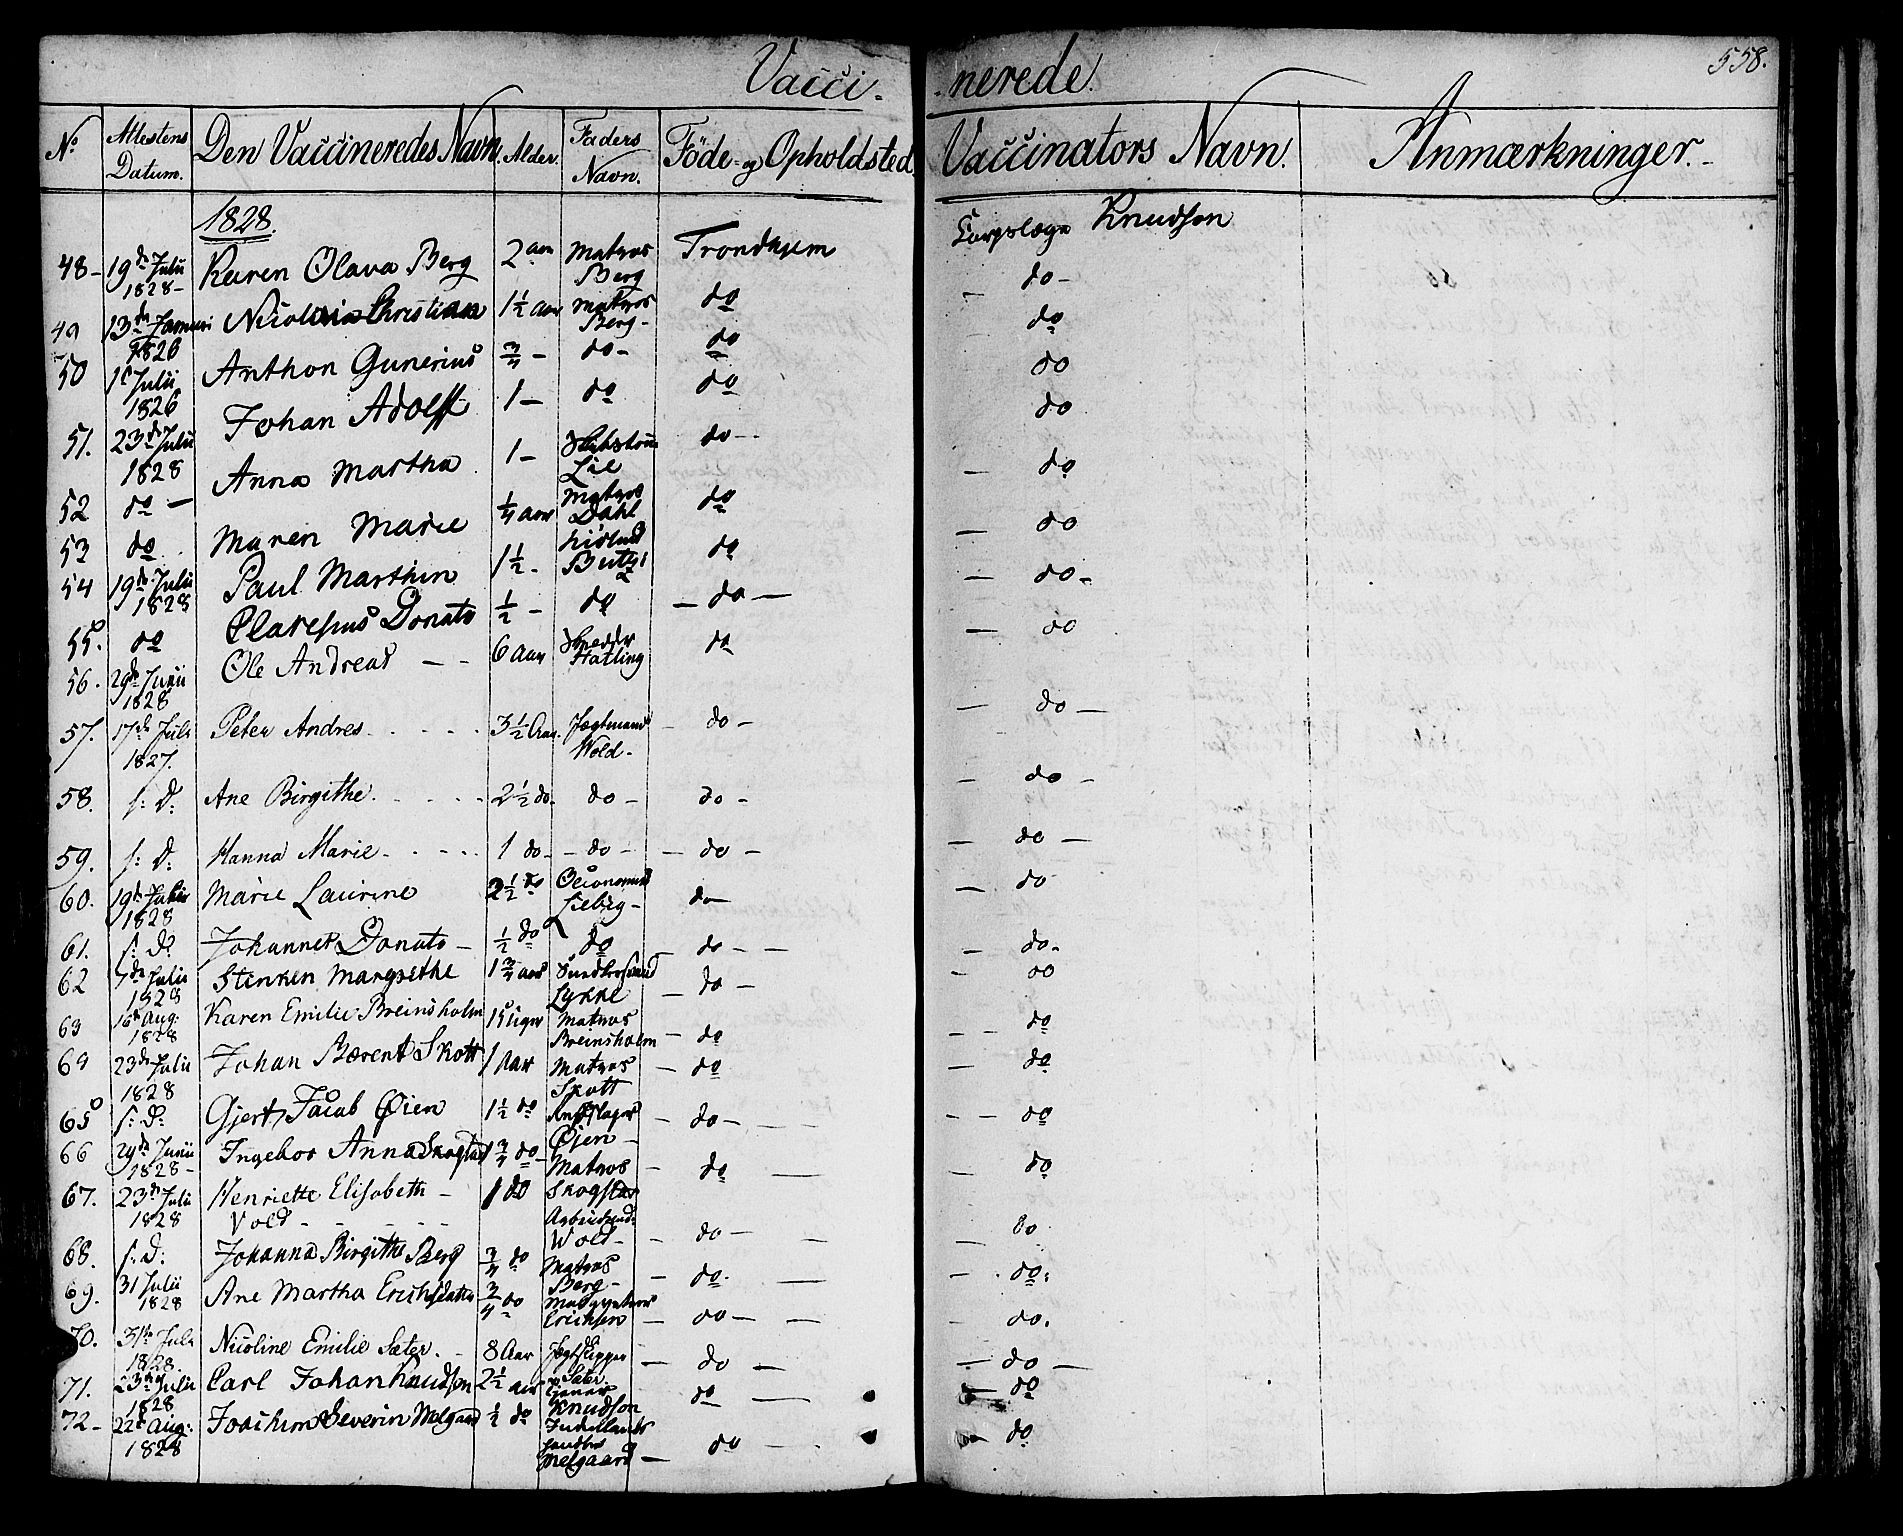 Vacci-
-nerede.
558.
No. Attestens Datum. Den Vaccineredes Navn. Alder. Faders Navn. Föde- og Opholdsted. Vaccinators Navn. Anmærkninger.
1828.
48- 19de Julii 1828- Karen Olava Berg 2 aar Matros Berg Trondhjem Corpslæge Knudson
49 13de Januari 1826 Christian 1½ aar Matros Berg- do - do-
50 1te Julii 1826 Anthon Gunerius ¾ - do- do do
51. 23de Julii 1828 Johan Adolff 1- do do do
52 do - Anna Martha 1- Lie do-- do
53 do Maren Marie ¼ aar Matros Dahl do - do
54 19de Julii 1828 Paul Marthin 1½- do - do
55. do Donato ½ - do - do - - do-
56. 29de Junii 1828 Ole Andreas - - 6 aar Hatling do - do
57. 17de Juli 1827. Peter Andres. 3½ Aar. Wold- - do - - do -
58. s: D: Ane Birgithe. 2½ do. do - do - - do -
59. s: D: Hanna Marie. 1 do. - do - - do - - do -
60. 1828 Marie Laurine 2½ do Oeconomus do- - do
61. s: D: Johannes Donato- ½ do do do - - - do-
62 Julii 1828 Margrethe 1¾ aar Lykke - do - - do
63 16de Aug: 1828 Karen Emilie Breinsholm Matros Breinsholm - do - - do
64 23de Julii 1828 Johan Bærent Skott 1 Aar Matros Skott - do - do
65 s: D: Gjert Jacob Øien 1½ do Øien - - do - - - - do
66 29de Junii 1828- Ingebor Anna Skogstad 1¾ do- Matros Skogstad - do - - do
67. 23de Julii 1828 Henriette Elisabeth - Vold - - - - 1 do Wold- - do - - - do
68. s: D: Johanna Birgithe Berg ¾ do Matros Berg- - do. - - . do:
69. 31 Julii 1828 Ane Martha ¾ do Erichsen - do - - - do.
70. 31te Juli 1828. Nicoline Emilie Sæter. 8 Aar Sæter - do - - do -
71. 23de Julii 1828 Carl Johan Knudson 2½ aar Knudson do - - do
72- 22de Aug: 1828 Joachim Severin Melgaard ½ do Melgaard - do - - do